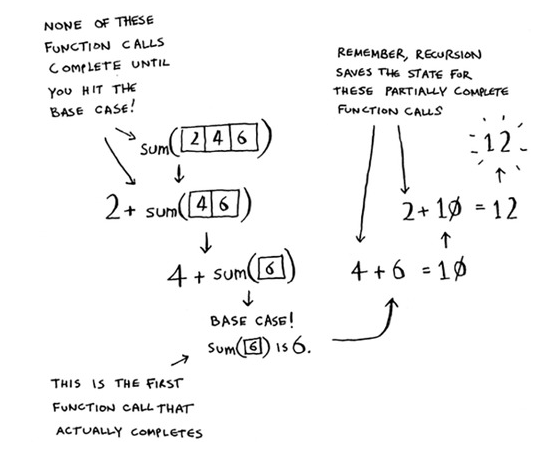 NONE OF THESE
FUNCTION CALLS
COMPLETE UNTIL
YOU HIT THE
BASE CASE!
sum([2][4][6])
2 + sum([4][6])
4 + sum([6])
BASE CASE!
sum([6]) IS 6.
THIS IS THE FIRST
FUNCTION CALL THAT
ACTUALLY COMPLETES
REMEMBER, RECURSION
SAVES THE STATE FOR
THESE PARTIALLY COMPLETE
FUNCTION CALLS
12
2 + 10 = 12
4 + 6 = 10